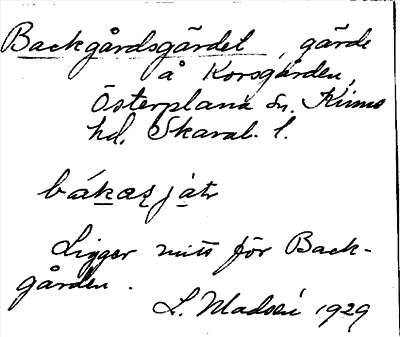 Backgårdsgärdet, gärde
å Korsgården,
Österplana sn. Kinne
hd, Skarab. l.
Ligger mitt för Back-
gården.
L. Madsén 1929